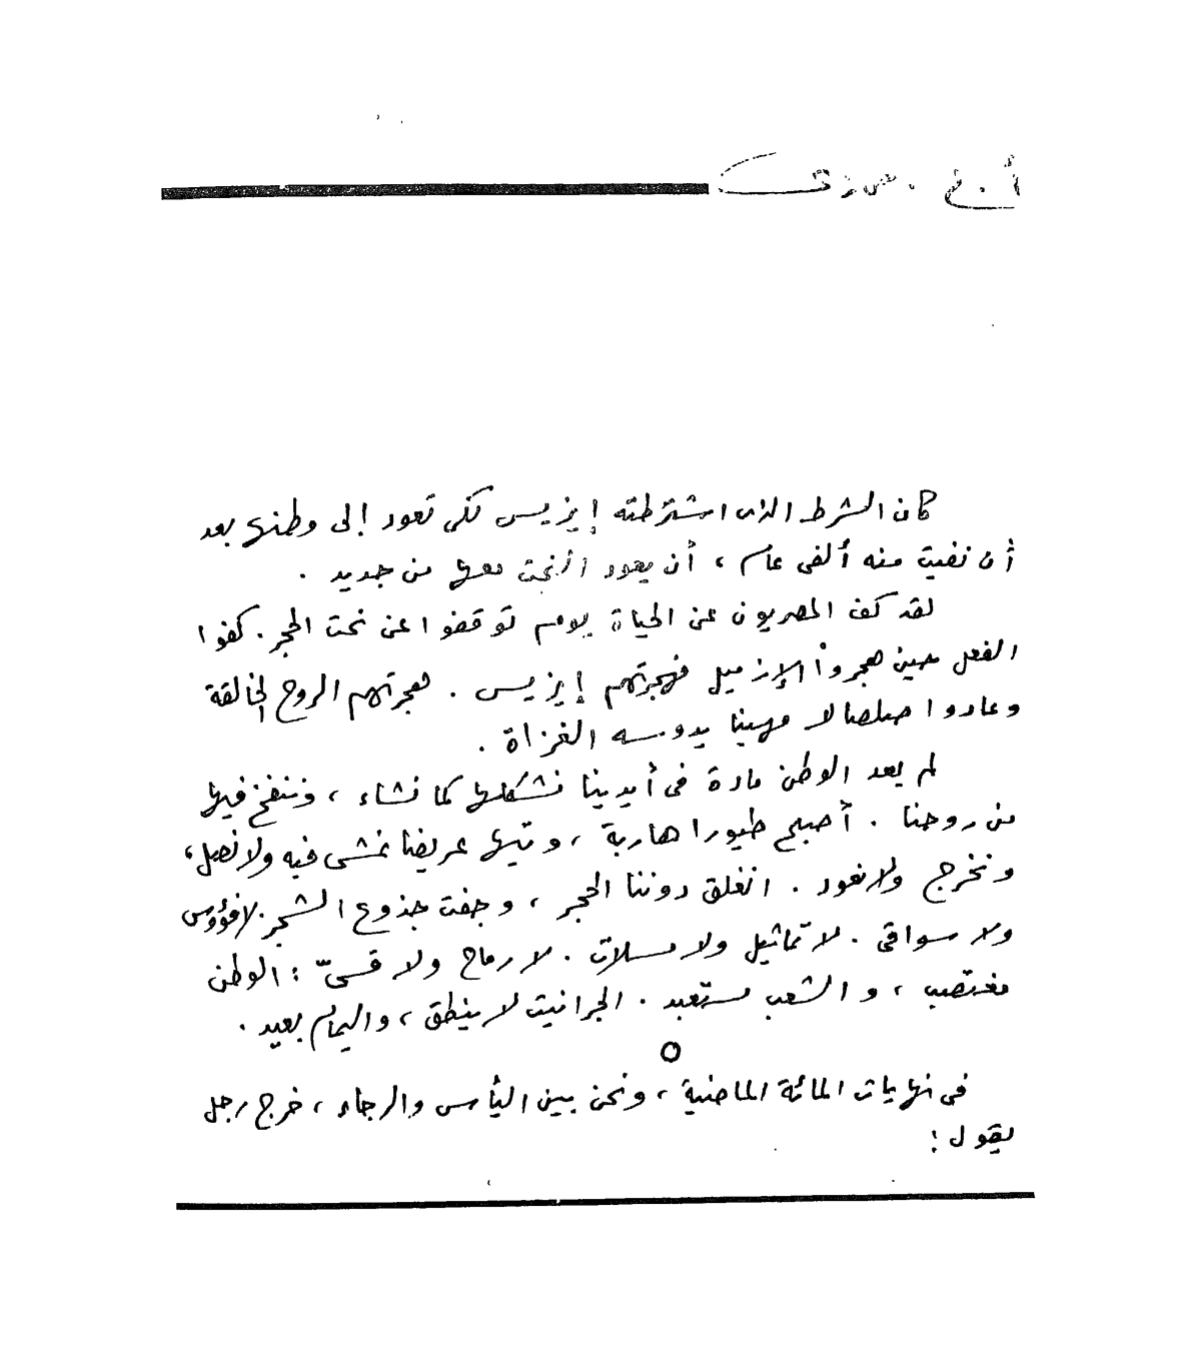 كان الشرط الذى اشترطته إيزيس لكى تعود إلى وطنها بعد
أن نفيت منه ألفى عام ، أن يعود النحت معها من جديد .
لقد كف المصريون عن الحياة يوم توقفوا عن نحت الحجر . كفوا
الفعل حين هجروا الإزميل فهجرتهم إيزيس . هجرتهم الروح الخالقة
وعادوا صلصالا مهينا يدوسه الغزاة .
لم يعد الوطن مادة فى أيدينا نشكلها كما نشاء ، وننفخ فيها
من روحنا . أصبح طيورا هاربة ، وتيها عريضا نمشى فيه ولا نصل ،
ونخرج ولا نعود . انغلق دوننا الحجر ، وجفت جذوع الشجر . لا فؤوس
ولا سواقى . لا تماثيل ولا مسلات . لا رماح ولا قسىّ : الوطن
مغتصب ، والشعب مستعبد . الجرانيت لا ينطق ، واليمام بعيد .
فى نهايات المائة الماضية ، ونحن بين اليأس والرجاء ، خرج رجل
يقول :